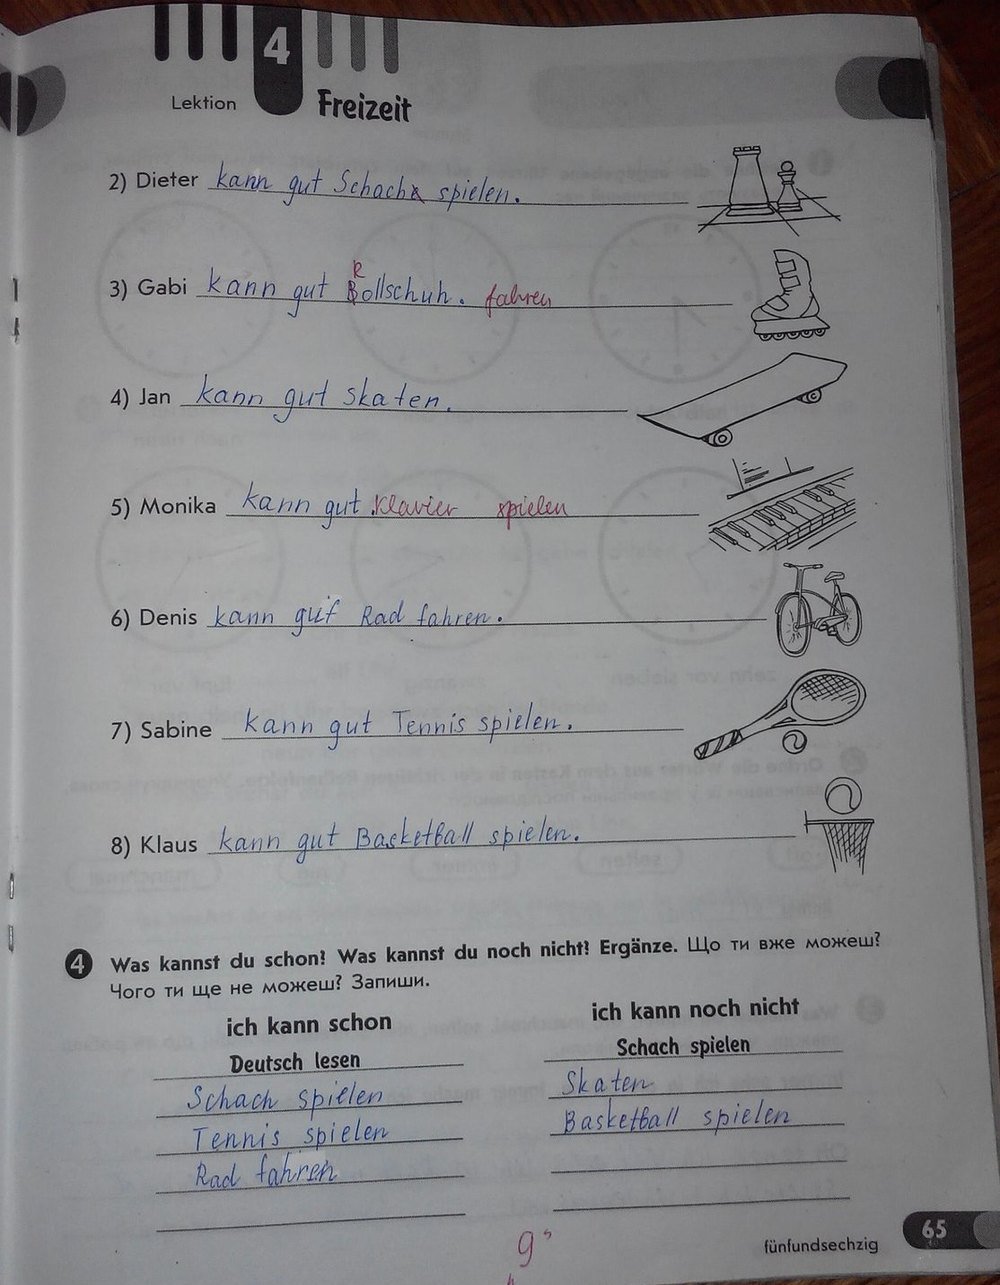 4
Lektion Freizeit
2) Dieter kann gut Schach spielen.
R
3) Gabi kann gut Bollschuh. fahren
4) Jan kann gut skaten.
5) Monika kann gut klavier spielen
6) Denis kann gut Rad fahren.
7) Sabine kann gut Tennis spielen.
8) Klaus kann gut Basketball spielen.
4 Was kannst du schon? Was kannst du noch nicht? Ergänze. Що ти вже можеш?
Чого ти ще не можеш? Запиши.
ich kann schon ich kann noch nicht
Deutsch lesen Schach spielen
Schach spielen Skaten
Tennis spielen Basketball spielen
Rad fahren
9
65
fünfundsechzig